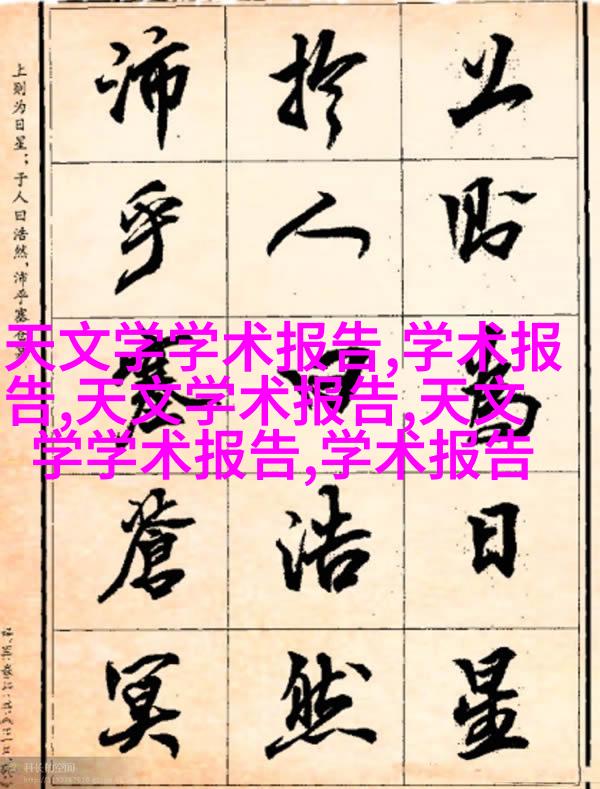 上则为日星；于人曰浩然，沛乎塞苍冥
上則為日星
於人曰浩然
沛乎塞蒼冥
天文学学术报告,学术报
告,天文学术报告,天文
学学术报告,学术报告
科长的空间